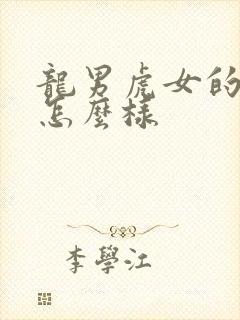 龍男虎女的
怎麼樣
李學江